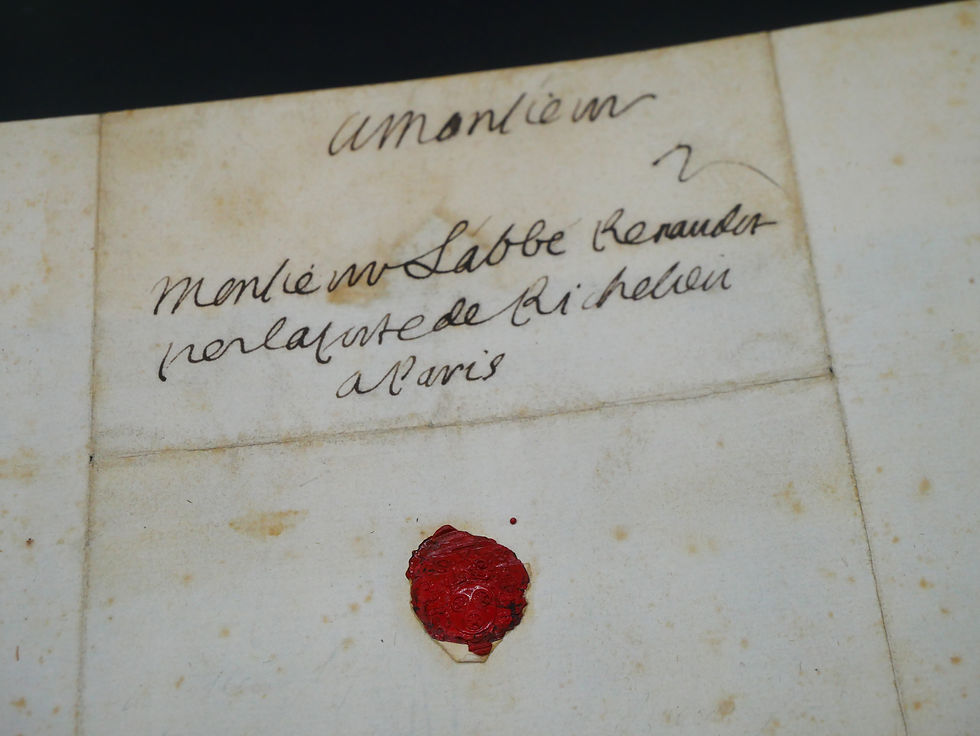 A Monsieur
Monsieur Labbé Renaudot
per la porte de Richelieu
a Paris